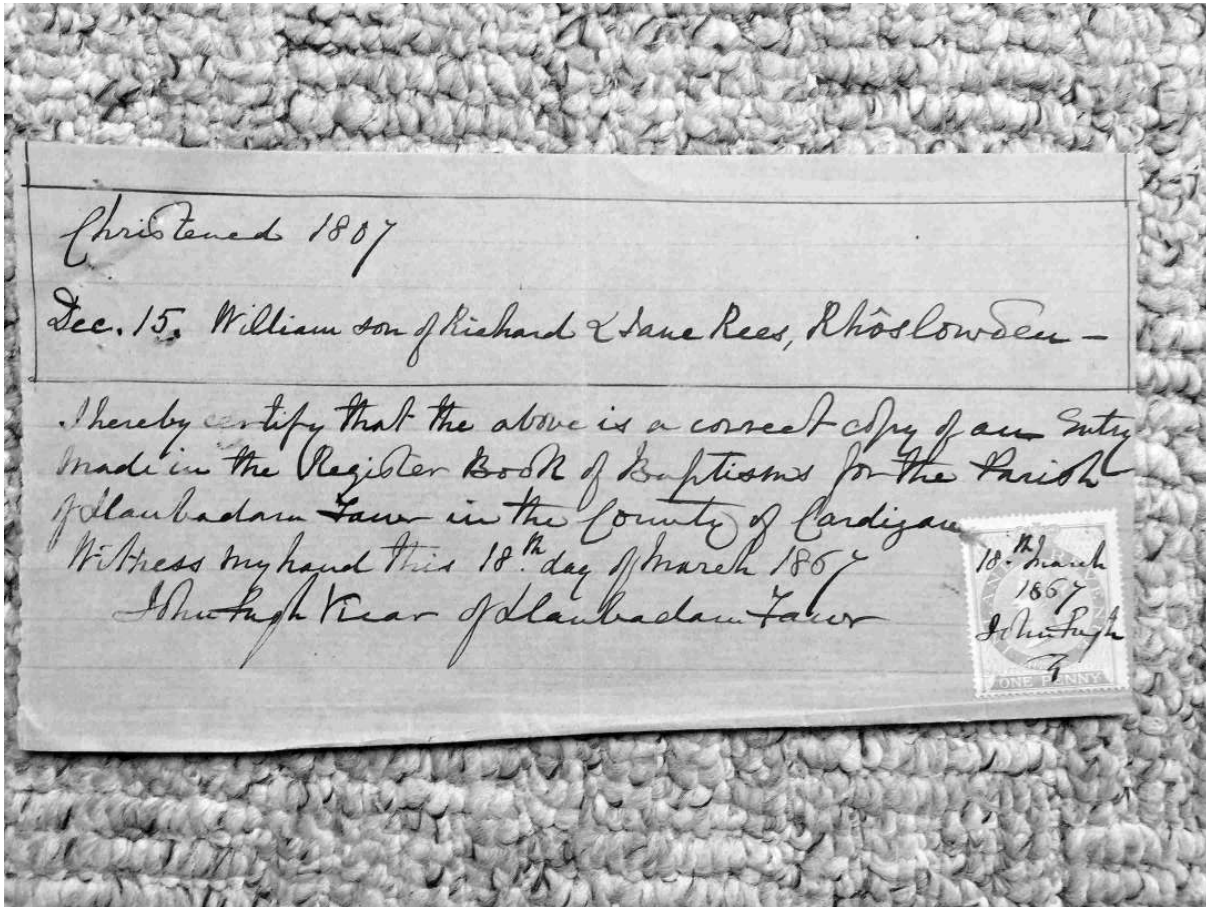 Christened 1807
Dec. 15. William son of Richard & Jane Rees, Rhôslowden —
I hereby certify that the above is a correct copy of an Entry
made in the Register Book of Baptisms for the Parish
of Llanbadarn Fawr in the County of Cardigan
Witness my hand this 18th. day of March 1867
John Pugh Vicar of Llanbadarn Fawr
18th. March
1867
John Pugh
ONE PENNY